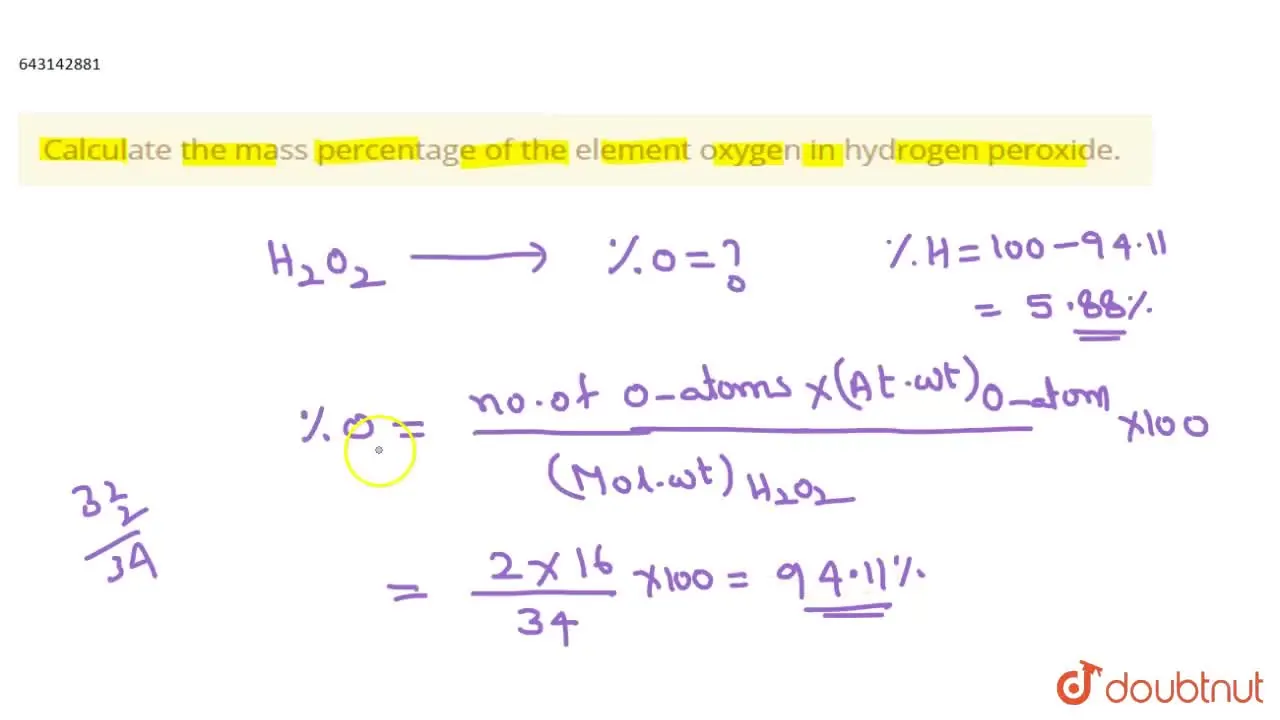 643142881
Calculate the mass percentage of the element oxygen in hydrogen peroxide.
H₂O₂ ⟶ %O = ?
%H = 100 - 94.11
= 5.88%
%O = no. of O-atoms × (At.wt) O-atom × 100
(Mol.wt) H₂O₂
32
2
34
= 2 × 16 × 100 = 94.11%
34
doubtnut